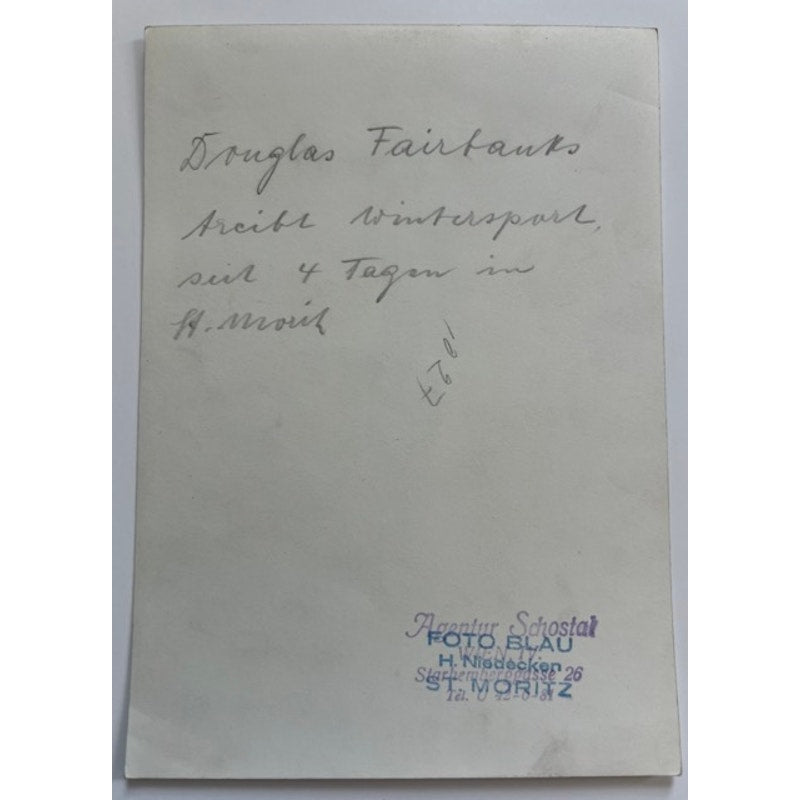 Douglas Fairbanks
treibt Wintersport,
seit 4 Tagen in
St. Moritz
Agentur Schostal
FOTO BLAU
WIEN IV
H. Niedecken
Starhemberggasse 26
ST. MORITZ